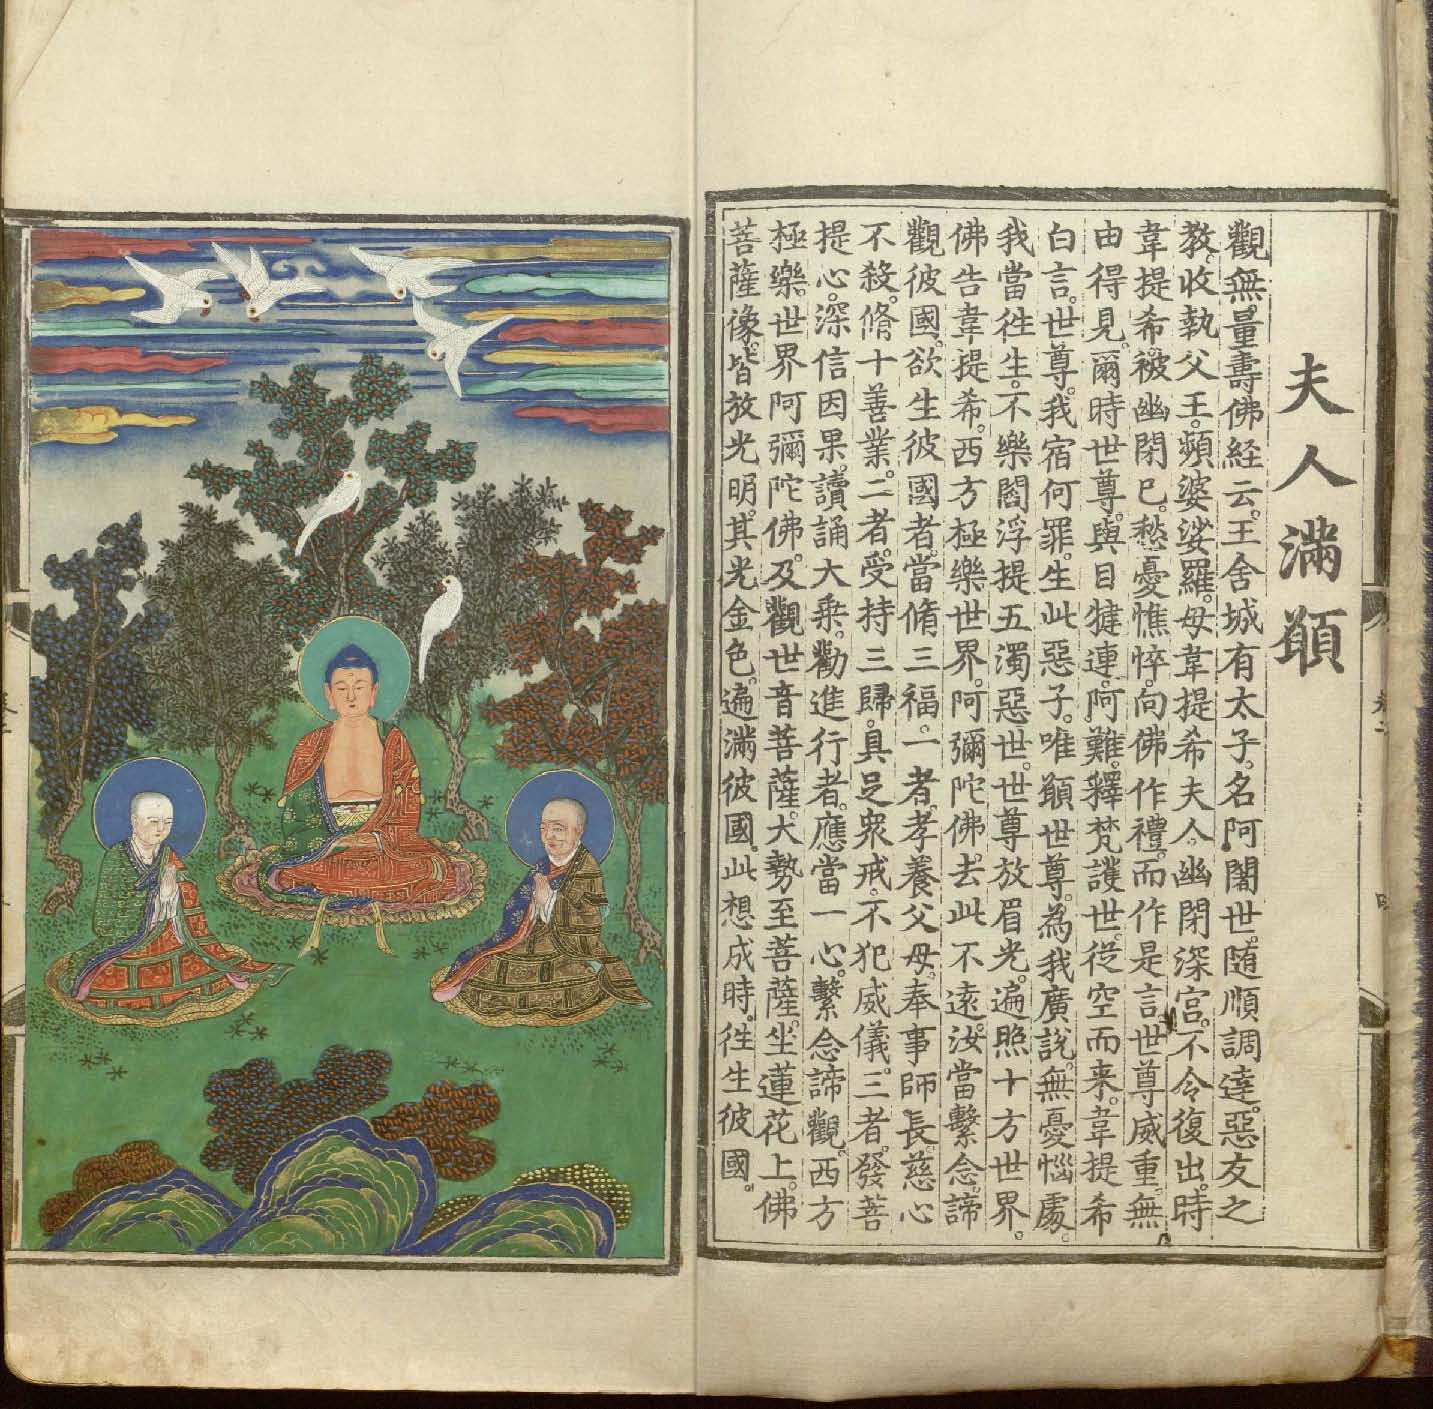 夫人滿願
觀無量壽佛経云。王舍城有太子。名阿闍世。随順調達。惡友之
教。收執父王。頻婆娑羅。母韋提希夫人。幽閉深宮。不令復出。時
韋提希。被幽閉已。愁憂憔悴。向佛作禮。而作是言。世尊威重。無
由得見。爾時世尊。與目犍連。阿難。釋梵護世。從空而来。韋提希
白言。世尊。我宿何罪。生此惡子。唯願世尊。為我廣說。無憂惱處。
我當往生。不樂閻浮提五濁惡世。世尊放眉光。遍照十方世界。
佛告韋提希。西方極樂世界。阿彌陀佛。去此不遠。汝當繫念。諦
觀彼國。欲生彼國者。當脩三福。一者。孝養父母。奉事師長。慈心
不殺。脩十善業。二者。受持三歸。具足衆戒。不犯威儀。三者。發菩
提心。深信因果。讀誦大乗。勸進行者。應當一心。繫念諦觀。西方
極樂世界阿彌陀佛。及觀世音菩薩。大勢至菩薩。坐蓮花上。佛
菩薩像。皆放光明。其光金色。遍滿彼國。此想成時。往生彼國。